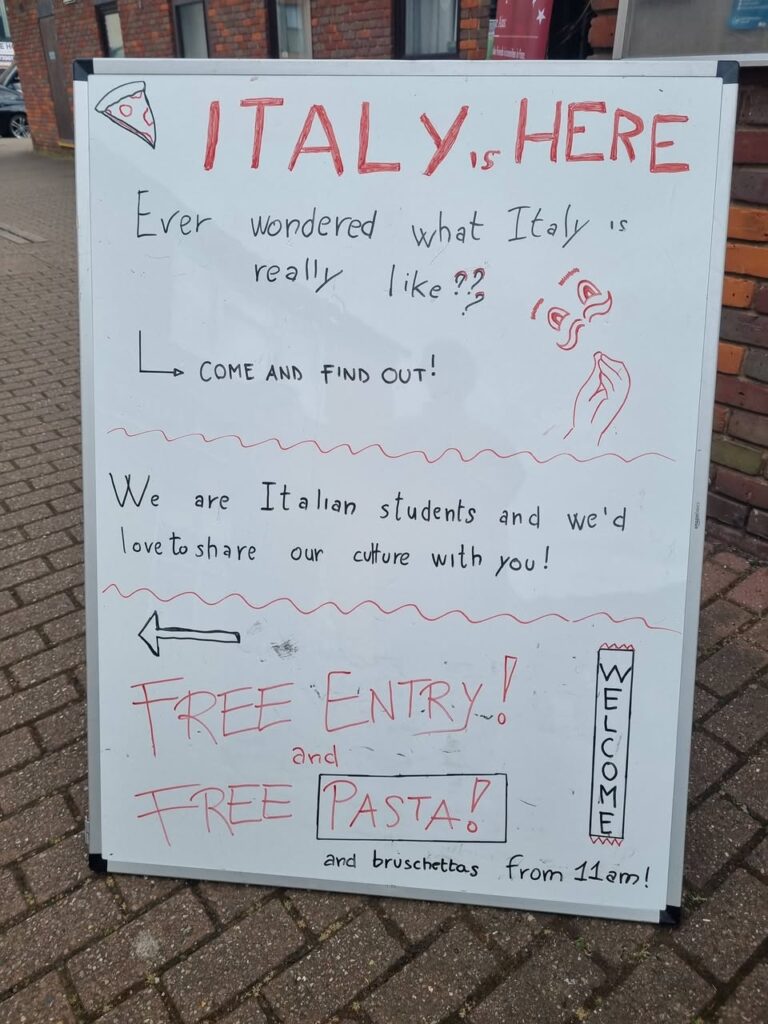 ITALY is HERE
Ever wondered what Italy is
really like???
COME AND FIND OUT!
We are Italian students and we'd
love to share our culture with you!
FREE ENTRY!
and
FREE PASTA!
and bruschettas from 11am!
WELCOME